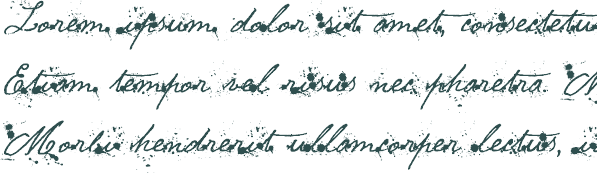 Lorem ipsum dolor sit amet, consectetu
Etiam tempor vel risus nec pharetra. M
Morbi hendrerit ullamcorper lectus, i